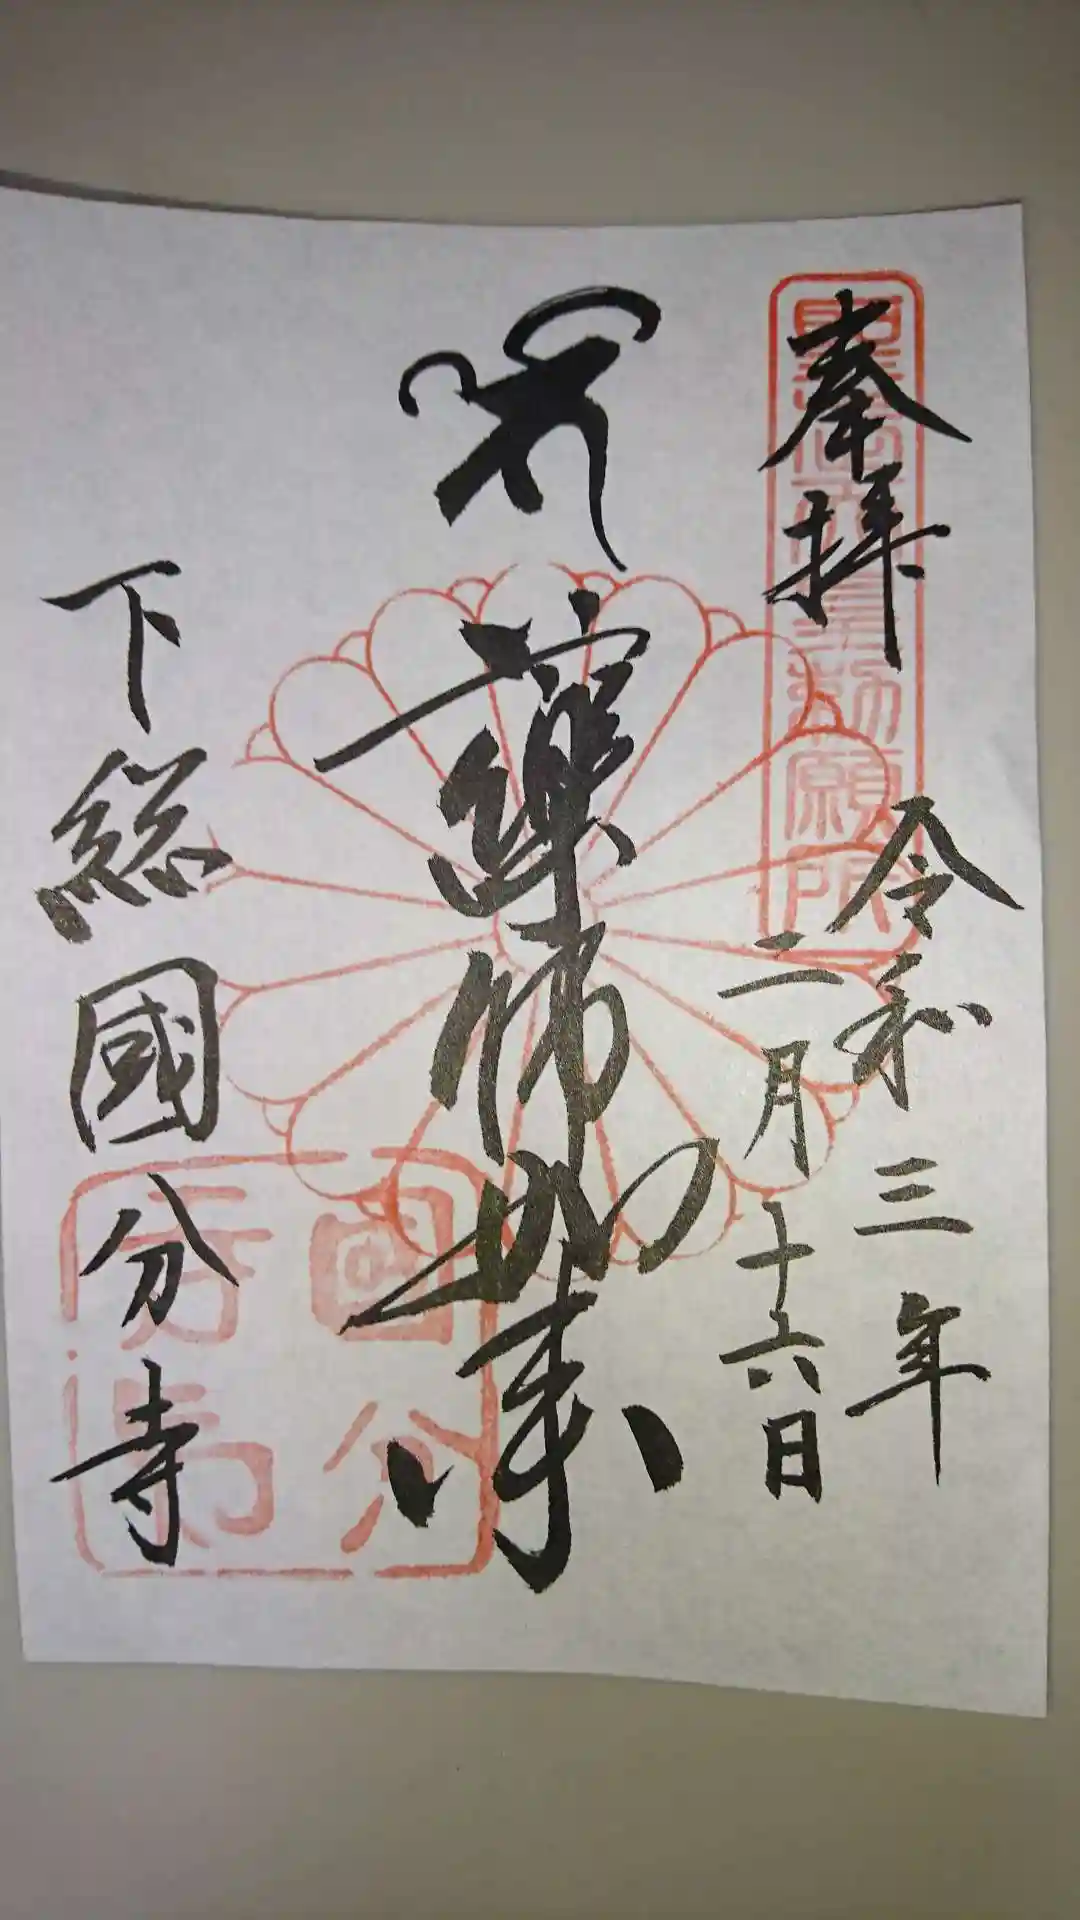 奉拝
聖武天皇勅願所
令和三年
二月十六日
薬師如来
下総國分寺
國分
寺